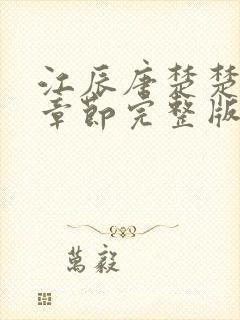 江辰唐楚楚
章節完整版
萬毅